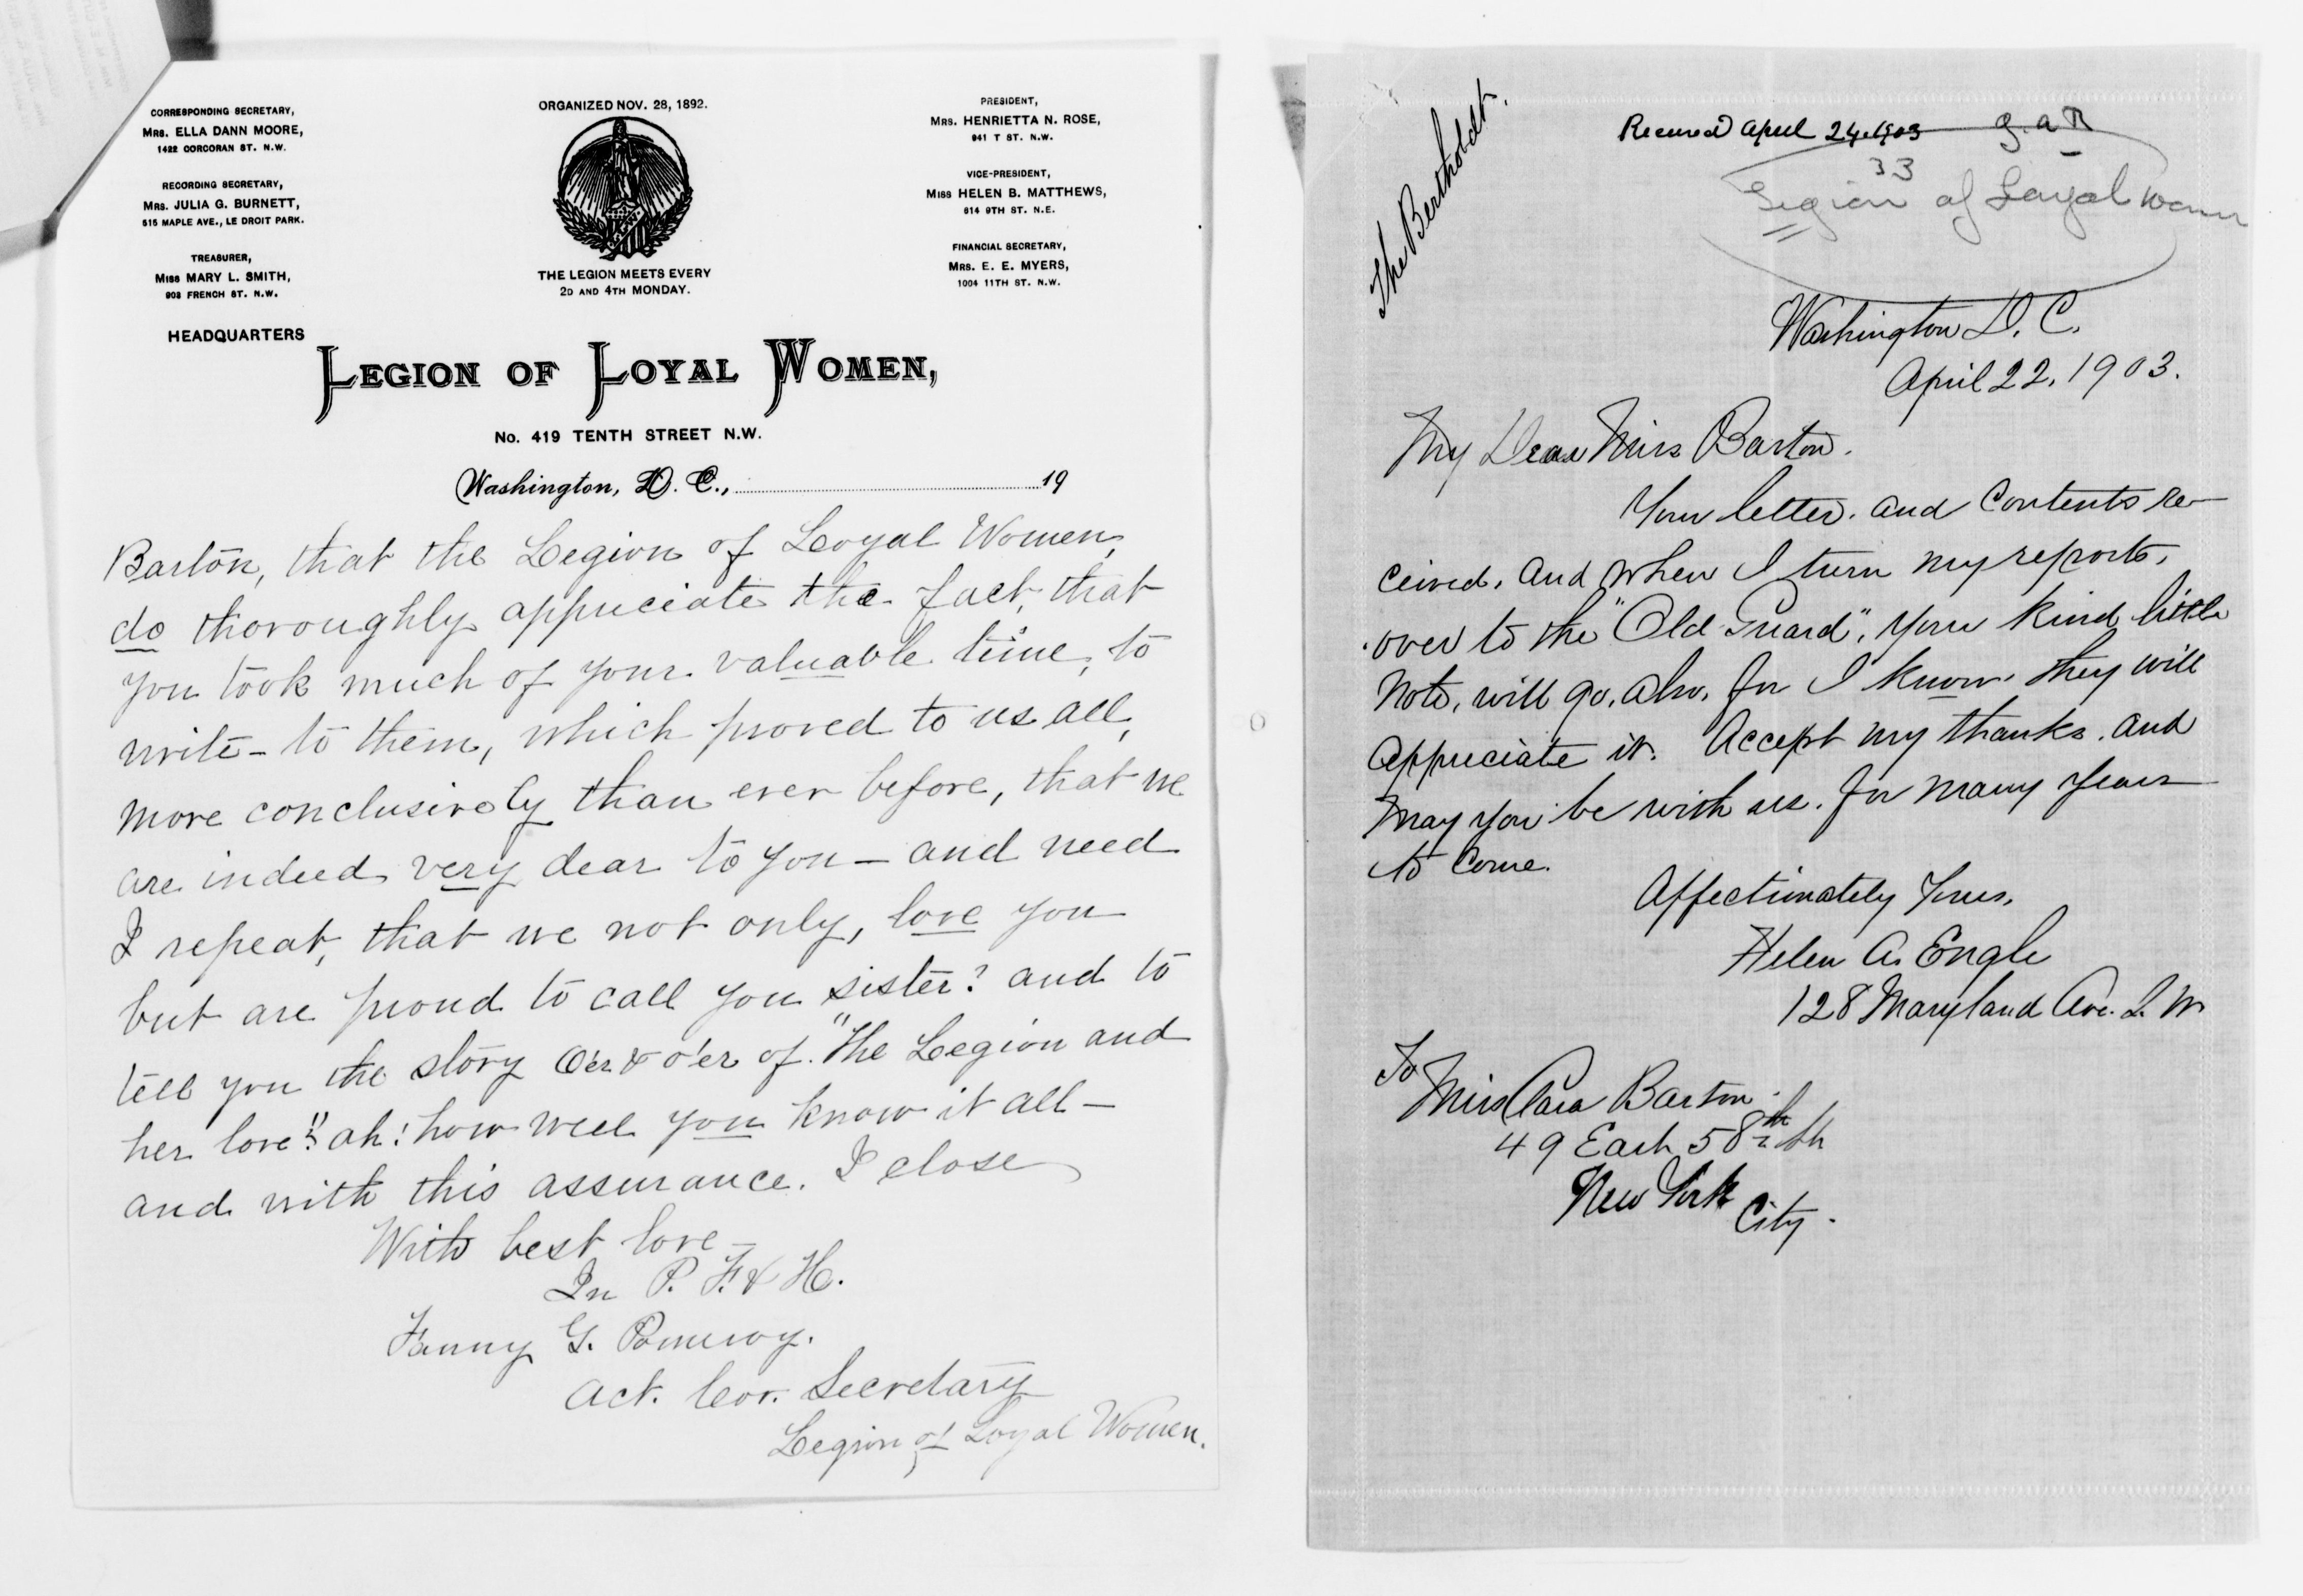 CORRESPONDING SECRETARY,
MRS. ELLA DANN MOORE,
1422 CORCORAN ST. N.W.
RECORDING SECRETARY,
MRS. JULIA G. BURNETT,
515 MAPLE AVE., LE DROIT PARK.
TREASURER,
MISS MARY L. SMITH,
903 FRENCH ST. N.W.
HEADQUARTERS
ORGANIZED NOV. 28, 1892.
THE LEGION MEETS EVERY
2D AND 4TH MONDAY.
PRESIDENT,
MRS. HENRIETTA N. ROSE,
941 T ST. N.W.
VICE-PRESIDENT,
MISS HELEN B. MATTHEWS,
614 9TH ST. N.E.
FINANCIAL SECRETARY,
MRS. E. E. MYERS,
1004 11TH ST. N.W.
LEGION OF LOYAL WOMEN,
No. 419 TENTH STREET N.W.
Washington, D. C., 19
Barton, that the Legion of Loyal Women,
do thoroughly appreciate the fact, that
you took much of your valuable time, to
write - to them, which proved to us all,
more conclusively than ever before, that we
are indeed very dear to you — and need
I repeat, that we not only, love you
but are proud to call you sister? and to
tell you the story O'er & o'er of "The Legion and
her love"? ah! how well you know it all —
and with this assurance. I close
With best love —
In P. F. & H.
Fanny G. Pomeroy.
Act. Cor. Secretary
Legion of Loyal Women.
The Bertholdt.
Received April 24, 1903 G. A R
33
Legion of Loyal Women
Washington D. C.
April 22, 1903.
My Dear Miss Barton.
Your letter. and Contents re-
ceived. And when I turn my reports,
over to the "Old Guard", your kind little
Note, will go, also, for I know they will
Appreciate it. Accept my thanks. and
may you be with us. for many years
to come.
Affectionately Yours,
Helen A. Engle
128 Maryland Ave. S. W.
To
Miss Clara Barton
49 East 58th St
New York
City.